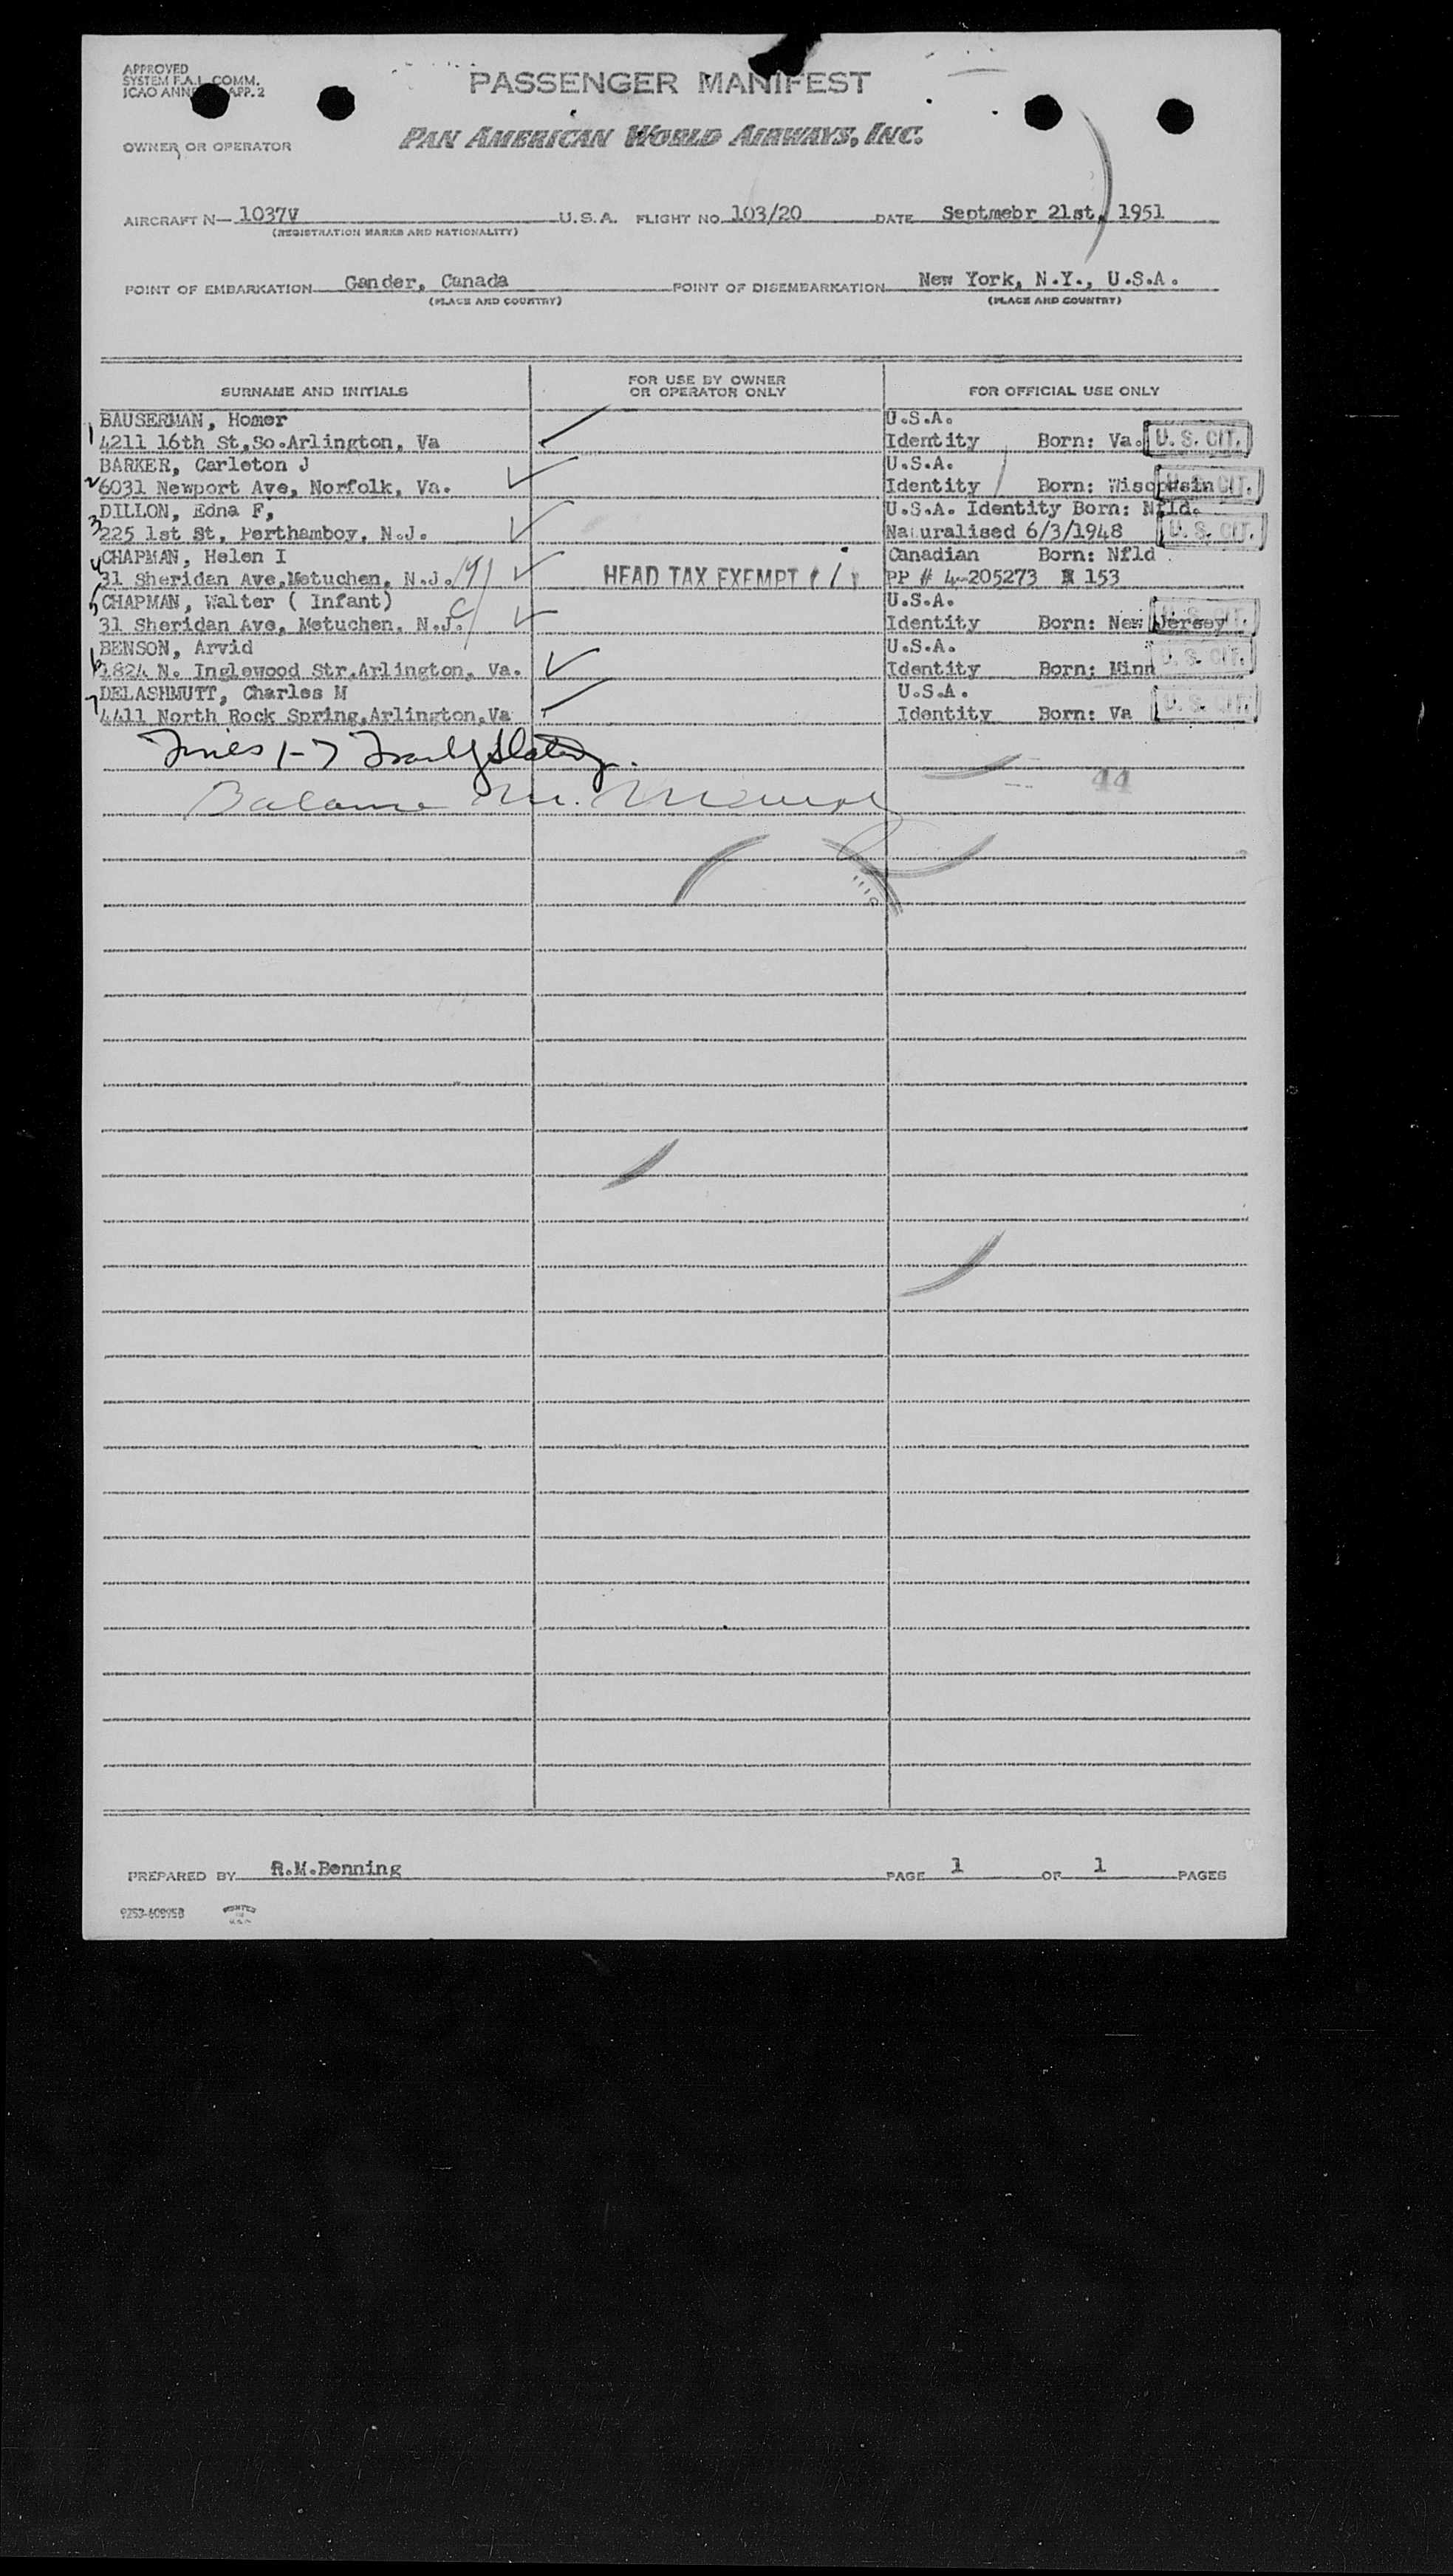 APPROVED
SYSTEM F.A.L. COMM.
ICAO ANNE APP. 2
PASSENGER MANIFEST
OWNER OR OPERATOR
PAN AMERICAN WORLD AIRWAYS, INC.
AIRCRAFT N— 1037V U.S.A. FLIGHT NO. 103/20 DATE Septmebr 21st, 1951
(REGISTRATION MARKS AND NATIONALITY)
POINT OF EMBARKATION Gander, Canada POINT OF DISEMBARKATION New York, N.Y., U.S.A.
(PLACE AND COUNTRY) (PLACE AND COUNTRY)
SURNAME AND INITIALS FOR USE BY OWNER OR OPERATOR ONLY FOR OFFICIAL USE ONLY
BAUSERMAN, Homer U.S.A.
1 4211 16th St,So.Arlington, Va Identity Born: Va. U. S. CIT.
BARKER, Carleton J U.S.A.
2 6031 Newport Ave, Norfolk, Va. Identity Born: Wisconsin U. S. CIT.
DILLON, Edna F, U.S.A. Identity Born: Nfld.
3 225 1st St, Perthamboy, N.J. Naturalised 6/3/1948 U. S. CIT.
4 CHAPMAN, Helen I Canadian Born: Nfld
31 Sheridan Ave,Metuchen, N.J. HEAD TAX EXEMPT PP # 4-205273 R 153
5 CHAPMAN, Walter ( Infant) U.S.A.
31 Sheridan Ave, Metuchen, N.J. Identity Born: New Jersey U. S. CIT.
BENSON, Arvid U.S.A.
6 1824 N. Inglewood Str,Arlington, Va. Identity Born: Minn U. S. CIT.
DELASHMUTT, Charles M U.S.A.
7 4411 North Rock Spring,Arlington,Va Identity Born: Va U. S. CIT.
1-7
44
PREPARED BY R.M.Benning PAGE 1 OF 1 PAGES
9253-60995B PRINTED IN U.S.A.